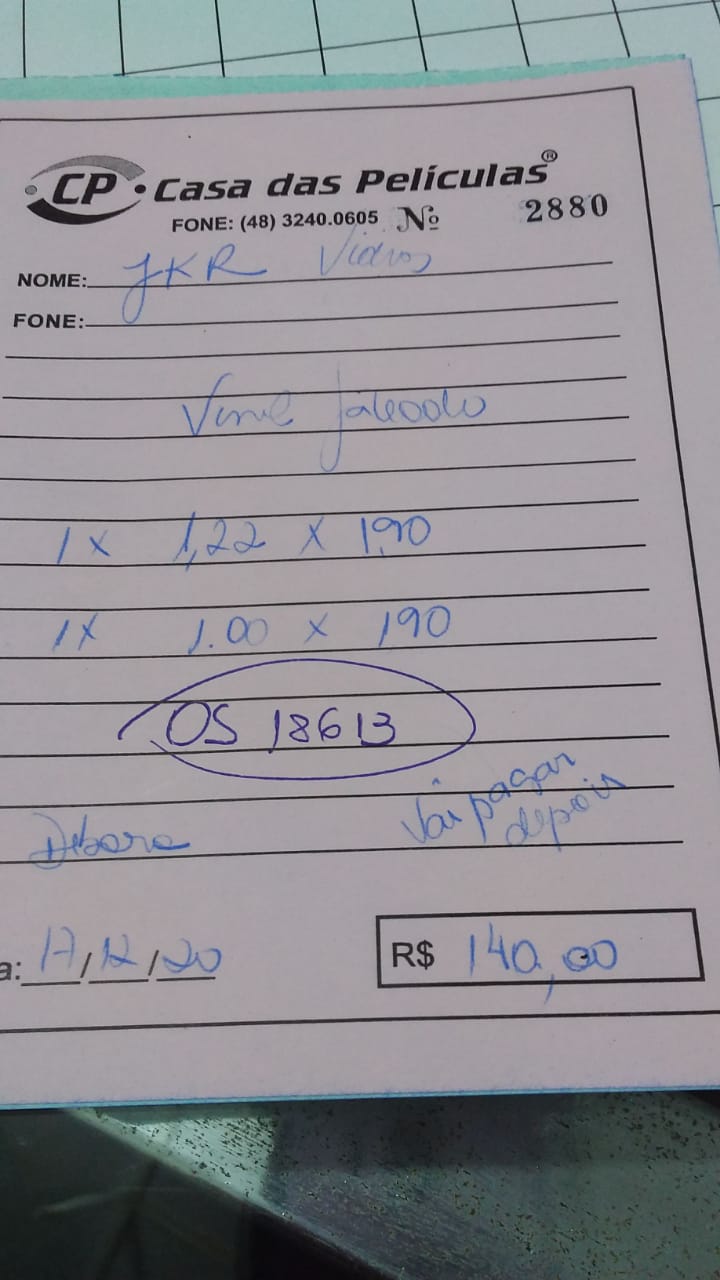 CP • Casa das Películas®
FONE: (48) 3240.0605 Nº 2880
NOME: JKR Vidros
FONE:
Vinil Jateado
1 x 1,22 x 1,90
1 x 1.00 x 190
OS 18613
Vai pagar
depois
Debora
a: 17/12/20
R$ 140,00